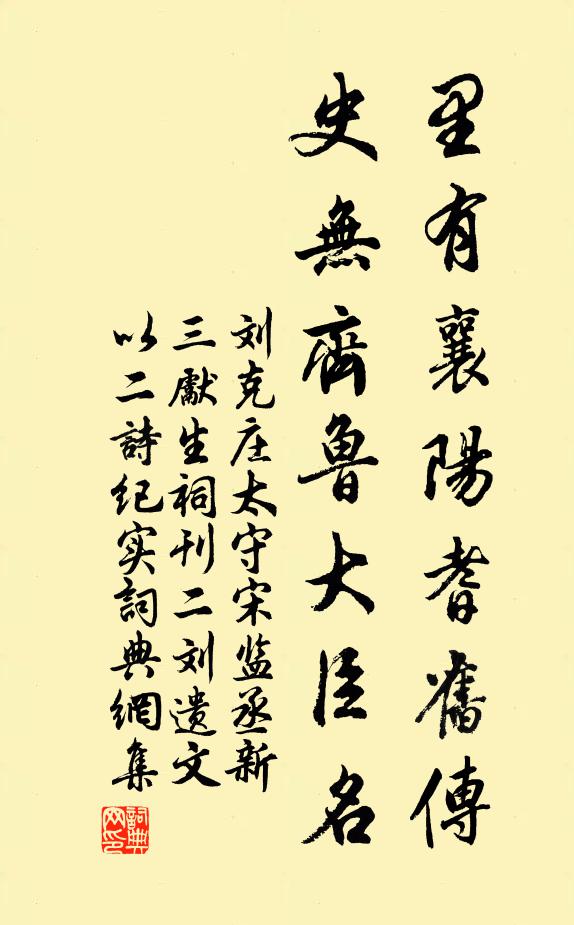 里有襄陽耆舊傳
史無齊魯大臣名
刘克庄太守宋监丞新
三獻生祠刊二刘遗文
以二詩纪实詞典網集
詞典網印